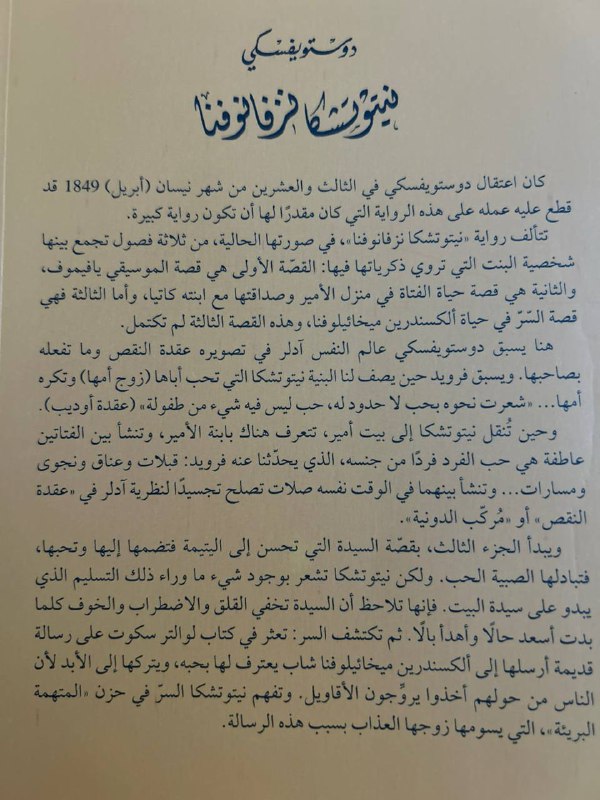 دوستويفسكي
نيتوتشكا نزفانوفنا
كان اعتقال دوستويفسكي في الثالث والعشرين من شهر نيسان (أبريل) 1849 قد
قطع عليه عمله على هذه الرواية التي كان مقدرًا لها أن تكون رواية كبيرة.
تتألف رواية «نيتوتشكا نزفانوفنا»، في صورتها الحالية، من ثلاثة فصول تجمع بينها
شخصية البنت التي تروي ذكرياتها فيها: القصّة الأولى هي قصة الموسيقي يافيموف،
والثانية هي قصة حياة الفتاة في منزل الأمير وصداقتها مع ابنته كاتيا، وأما الثالثة فهي
قصة السّرّ في حياة ألكسندرين ميخائيلوفنا، وهذه القصة الثالثة لم تكتمل.
هنا يسبق دوستويفسكي عالم النفس آدلر في تصويره عقدة النقص وما تفعله
بصاحبها. ويسبق فرويد حين يصف لنا البنية نيتوتشكا التي تحب أباها (زوج أمها) وتكره
أمها... «شعرت نحوه بحب لا حدود له، حب ليس فيه شيء من طفولة» (عقدة أوديب).
وحين تُنقل نيتوتشكا إلى بيت أمير، تتعرف هناك بابنة الأمير، وتنشأ بين الفتاتين
عاطفة هي حب الفرد فردًا من جنسه، الذي يحدّثنا عنه فرويد: قبلات وعناق ونجوى
ومسارات... وتنشأ بينهما في الوقت نفسه صلات تصلح تجسيدًا لنظرية آدلر في «عقدة
النقص» أو «مُركّب الدونية».
ويبدأ الجزء الثالث، بقصّة السيدة التي تحسن إلى اليتيمة فتضمها إليها وتحبها،
فتبادلها الصبية الحب. ولكن نيتوتشكا تشعر بوجود شيء ما وراء ذلك التسليم الذي
يبدو على سيدة البيت. فإنها تلاحظ أن السيدة تخفي القلق والاضطراب والخوف كلما
بدت أسعد حالًا وأهدأ بالًا. ثم تكتشف السر: تعثر في كتاب لوالتر سكوت على رسالة
قديمة أرسلها إلى ألكسندرين ميخائيلوفنا شاب يعترف لها بحبه، ويتركها إلى الأبد لأن
الناس من حولهم أخذوا يروِّجون الأقاويل. وتفهم نيتوتشكا السرّ في حزن «المتهمة
البريئة»، التي يسومها زوجها العذاب بسبب هذه الرسالة.